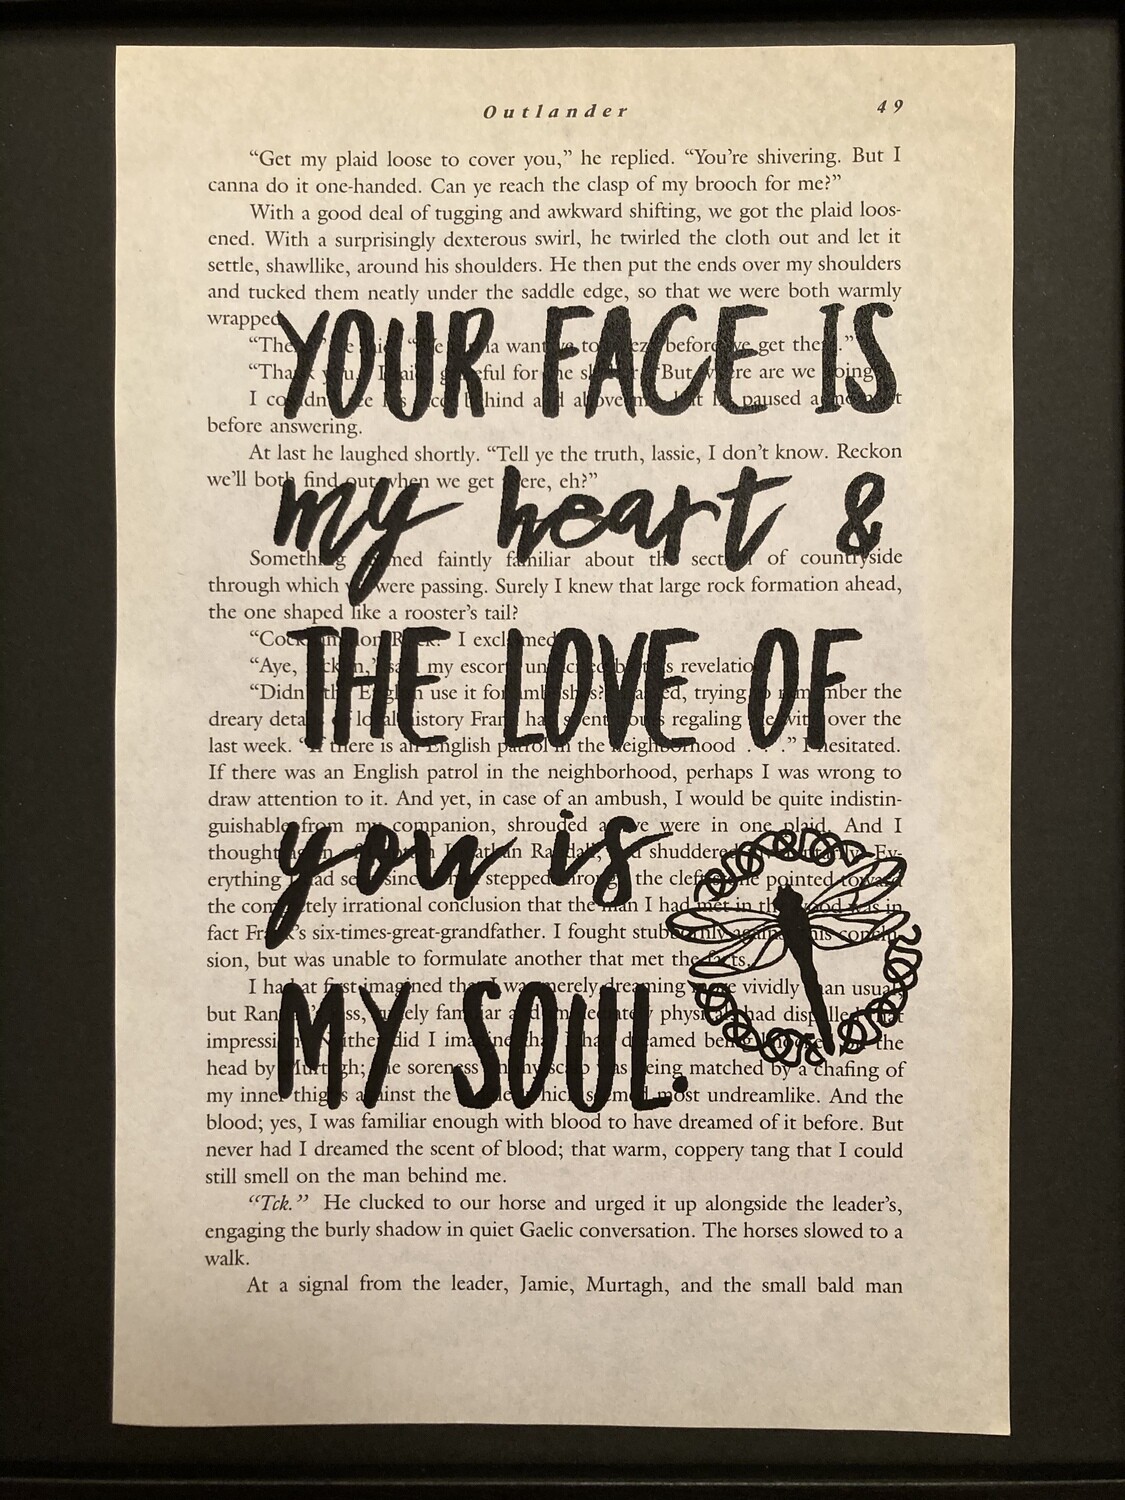 Outlander 49
“Get my plaid loose to cover you,” he replied. “You’re shivering. But I
canna do it one-handed. Can ye reach the clasp of my brooch for me?”
With a good deal of tugging and awkward shifting, we got the plaid loos-
ened. With a surprisingly dexterous swirl, he twirled the cloth out and let it
settle, shawllike, around his shoulders. He then put the ends over my shoulders
and tucked them neatly under the saddle edge, so that we were both warmly
wrapped
YOUR FACE IS
want to before we get
for the But where are we
I behind paused a
before answering.
At last he laughed shortly. “Tell ye the truth, lassie, I don’t know. Reckon
we’ll both find out when we get there, eh?”
my heart &
Something faintly familiar about the of countryside
through which were passing. Surely I knew that large rock formation ahead,
the one shaped like a rooster’s tail?
THE LOVE OF
I exclaimed
“Aye, my escort, revelation
“Didn’t the English use it for trying to remember the
dreary local history Frank had spent regaling me with over the
last week. “If there is an English patrol in the neighborhood . . .” I hesitated.
If there was an English patrol in the neighborhood, perhaps I was wrong to
draw attention to it. And yet, in case of an ambush, I would be quite indistin-
guishable from my companion, shrouded as we were in one plaid. And I
you is
thought Randall, shuddered Ev-
erything I had since stepped through the cleft pointed toward
the completely irrational conclusion that the man I had met in the wood was in
fact Frank’s six-times-great-grandfather. I fought stubbornly against this conclu-
sion, but was unable to formulate another that met the facts.
I had at first imagined that I was merely dreaming more vividly than usual,
MY SOUL.
but familiar and immediately physical, had dispelled that
impression. Neither did I imagine that I had dreamed being the
head by Murtagh; the soreness being matched by a chafing of
my inner thighs against the most undreamlike. And the
blood; yes, I was familiar enough with blood to have dreamed of it before. But
never had I dreamed the scent of blood; that warm, coppery tang that I could
still smell on the man behind me.
“Tck.” He clucked to our horse and urged it up alongside the leader’s,
engaging the burly shadow in quiet Gaelic conversation. The horses slowed to a
walk.
At a signal from the leader, Jamie, Murtagh, and the small bald man